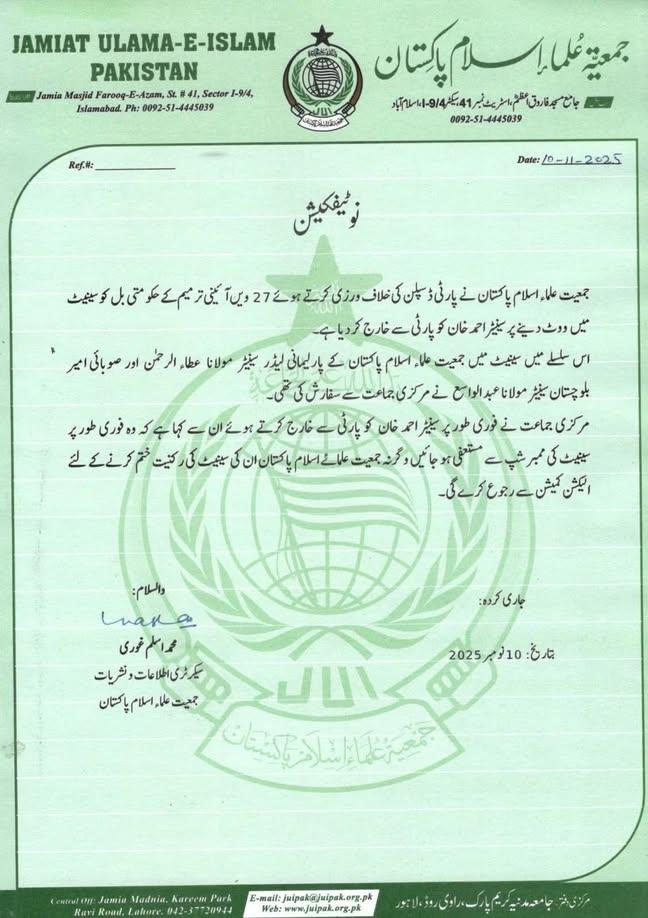 JAMIAT ULAMA-E-ISLAM
PAKISTAN
Jamia Masjid Farooq-E-Azam, St. # 41, Sector I-9/4,
Islamabad. Ph: 0092-51-4445039
جمعیۃ علماءِ اسلام پاکستان
جامع مسجد فاروق اعظمؓ، اسٹریٹ نمبر 41، سیکٹر I-9/4، اسلام آباد
0092-51-4445039
Ref.#:
Date: 10-11-2025
نوٹیفکیشن
جمعیت علماء اسلام پاکستان نے پارٹی ڈسپلن کی خلاف ورزی کرتے ہوئے 27 ویں آئینی ترمیم کے حکومتی بل کو سینیٹ
میں ووٹ دینے پر سینیٹر احمد خان کو پارٹی سے خارج کر دیا ہے۔
اس سلسلے میں سینیٹ میں جمعیت علماء اسلام پاکستان کے پارلیمانی لیڈر سینیٹر مولانا عطاء الرحمٰن اور صوبائی امیر
بلوچستان سینیٹر مولانا عبدالواسع نے مرکزی جماعت سے سفارش کی تھی۔
مرکزی جماعت نے فوری طور پر سینیٹر احمد خان کو پارٹی سے خارج کرتے ہوئے ان سے کہا ہے کہ وہ فوری طور پر
سینیٹ کی ممبر شپ سے مستعفی ہو جائیں وگرنہ جمعیت علمائے اسلام پاکستان ان کی سینیٹ کی رکنیت ختم کرنے کے لئے
الیکشن کمیشن سے رجوع کرے گی۔
جاری کردہ:
والسلام:
محمد اسلم غوری
سیکرٹری اطلاعات و نشریات
جمعیت علماء اسلام پاکستان
بتاریخ: 10 نومبر 2025
JUI
جمعیۃ علماء اسلام پاکستان
Central Off: Jamia Madnia, Kareem Park
Ravi Road, Lahore. 042-37720944
E-mail: juipak@juipak.org.pk
Web: www.juipak.org.pk
مرکزی دفتر: جامعہ مدنیہ کریم پارک، راوی روڈ، لاہور